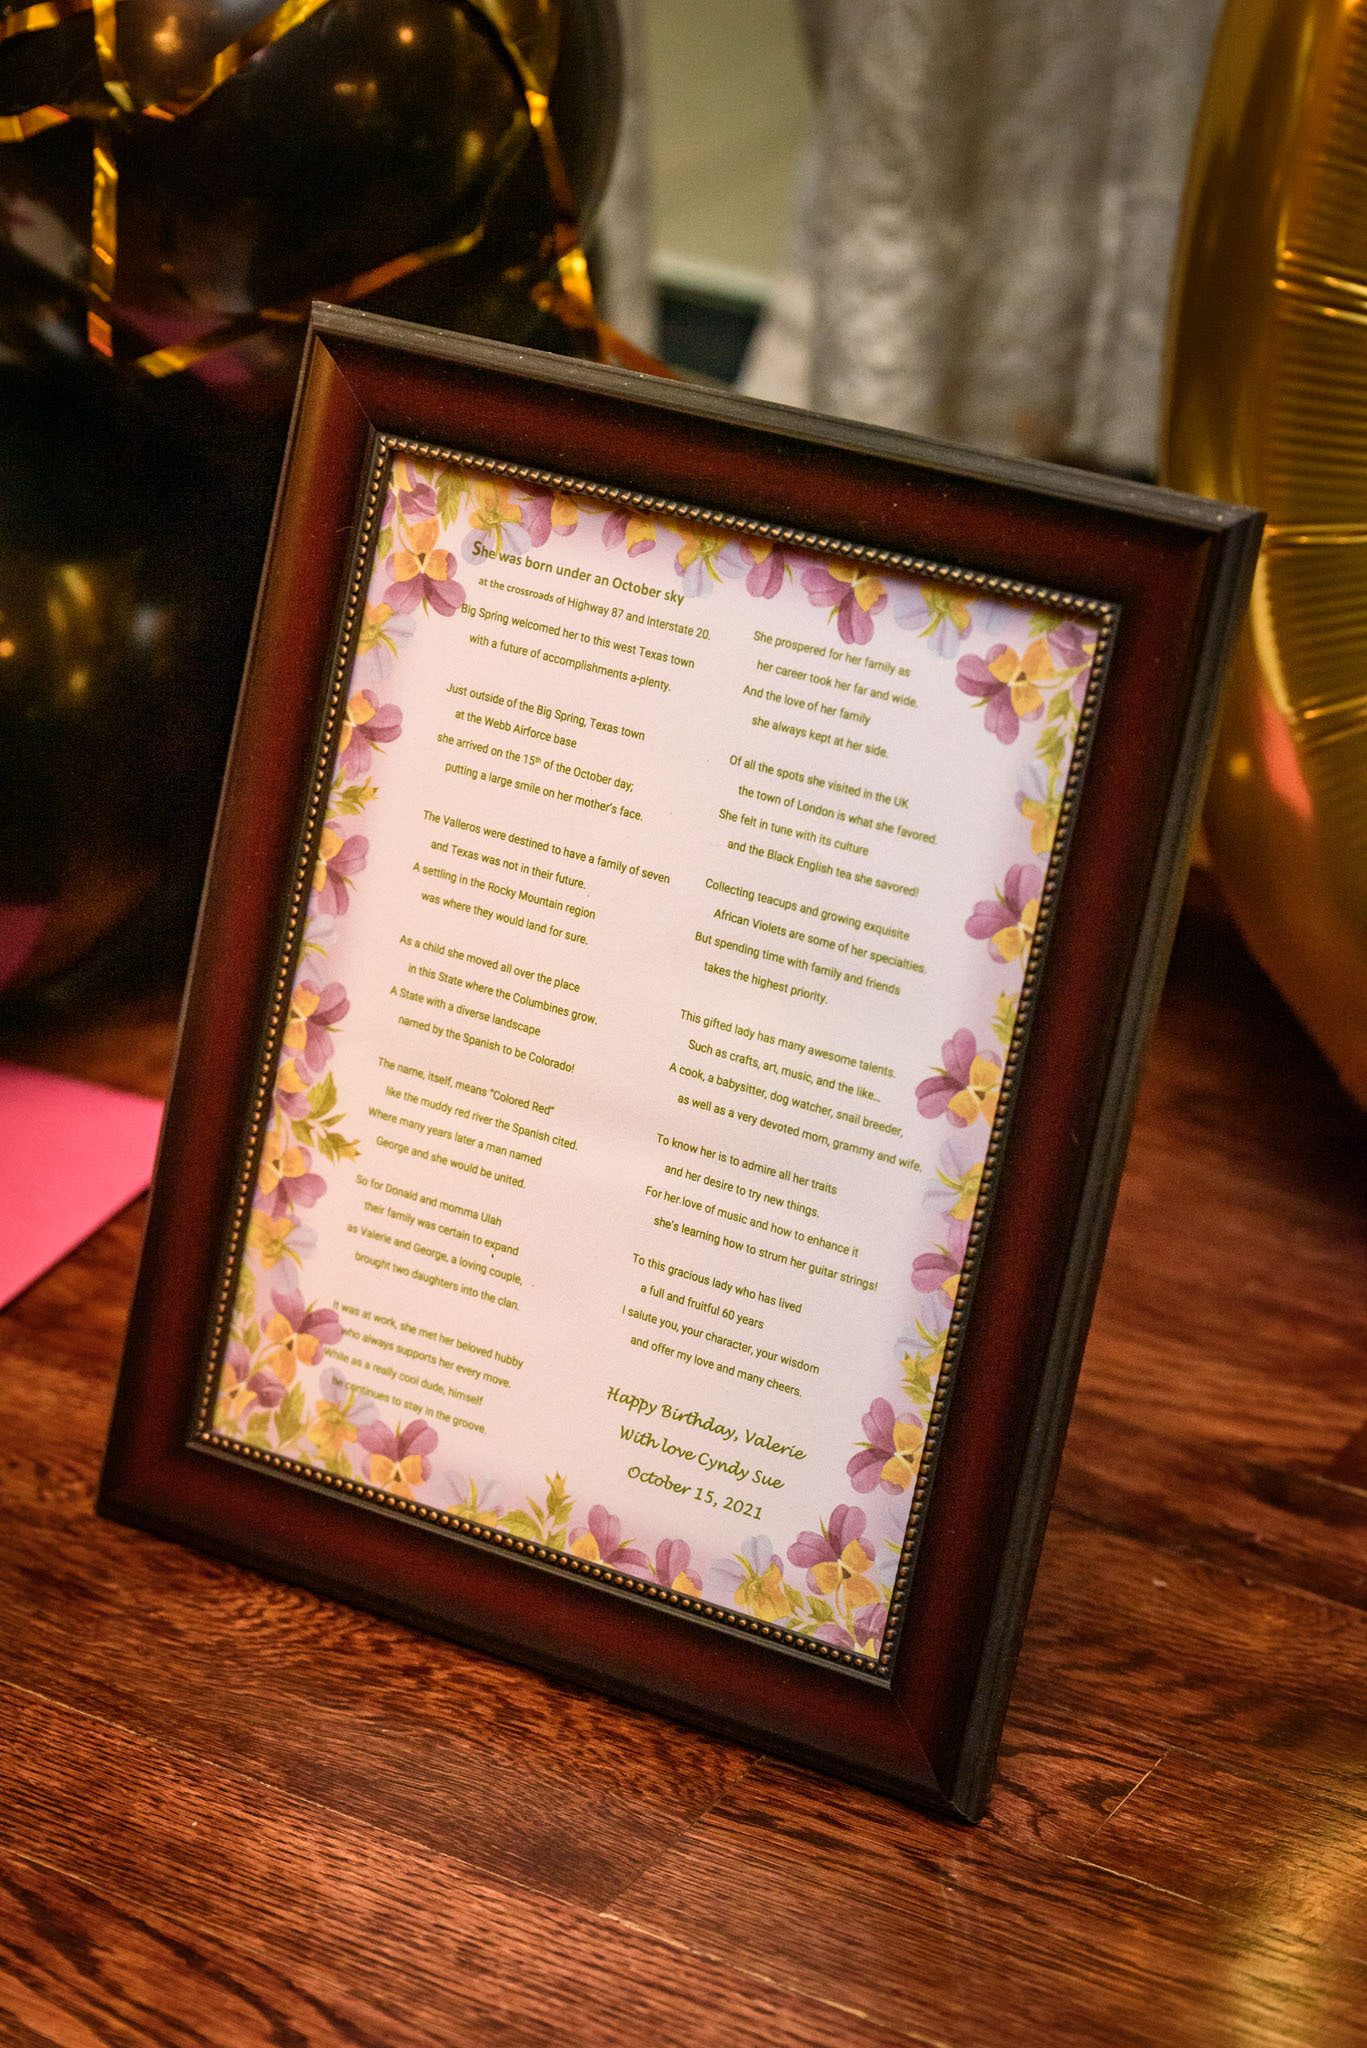 She was born under an October sky
at the crossroads of Highway 87 and Interstate 20.
Big Spring welcomed her to this west Texas town
with a future of accomplishments a-plenty.
Just outside of the Big Spring, Texas town
at the Webb Airforce base
she arrived on the 15th of the October day;
putting a large smile on her mother's face.
The Valleros were destined to have a family of seven
and Texas was not in their future.
A settling in the Rocky Mountain region
was where they would land for sure.
As a child she moved all over the place
in this State where the Columbines grow.
A State with a diverse landscape
named by the Spanish to be Colorado!
The name, itself, means "Colored Red"
like the muddy red river the Spanish cited.
Where many years later a man named
George and she would be united.
So for Donald and momma Ulah
their family was certain to expand
as Valerie and George, a loving couple,
brought two daughters into the clan.
It was at work, she met her beloved hubby
who always supports her every move.
While as a really cool dude, himself
he continues to stay in the groove.
She prospered for her family as
her career took her far and wide.
And the love of her family
she always kept at her side.
Of all the spots she visited in the UK
the town of London is what she favored.
She felt in tune with its culture
and the Black English tea she savored!
Collecting teacups and growing exquisite
African Violets are some of her specialties.
But spending time with family and friends
takes the highest priority.
This gifted lady has many awesome talents.
Such as crafts, art, music, and the like...
A cook, a babysitter, dog watcher, snail breeder,
as well as a very devoted mom, grammy and wife.
To know her is to admire all her traits
and her desire to try new things.
For her love of music and how to enhance it
she's learning how to strum her guitar strings!
To this gracious lady who has lived
a full and fruitful 60 years
I salute you, your character, your wisdom
and offer my love and many cheers.
Happy Birthday, Valerie
With love Cyndy Sue
October 15, 2021